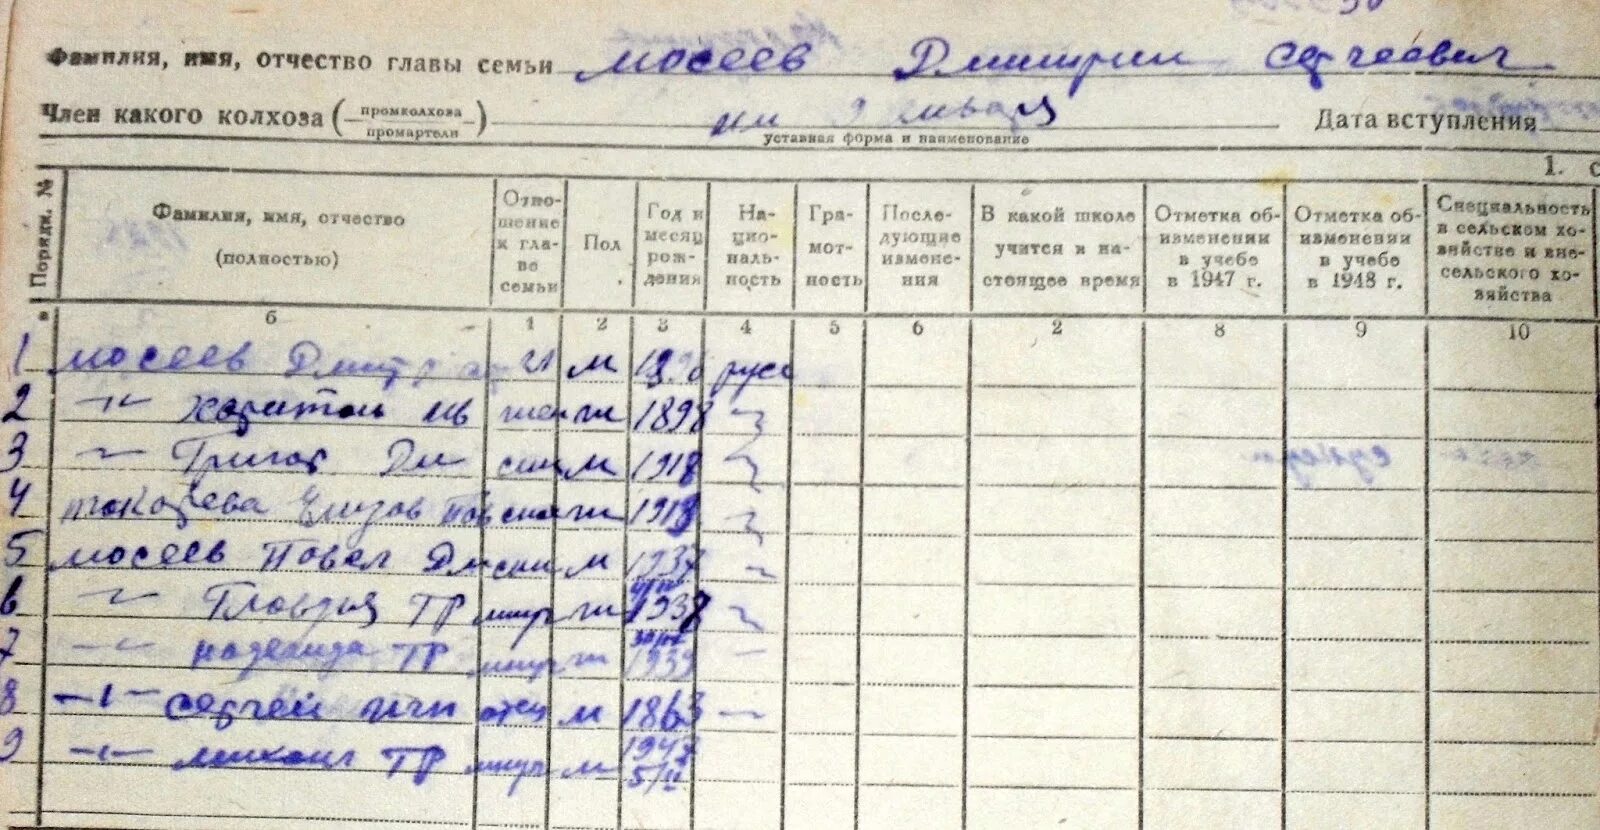 Фамилия, имя, отчество главы семьи Мосеев Дмитрий Сергеевич
Член какого колхоза (промколхоза промартели) им 9 января Дата вступления
уставная форма и наименование
1. с
Порядк. № Фамилия, имя, отчество (полностью) Отношение к главе семьи Пол Год и месяц рождения Национальность Грамотность Последующие изменения В какой школе учится в настоящее время Отметка об изменении в учебе в 1947 г. Отметка об изменении в учебе в 1948 г. Специальность в сельском хозяйстве и вне сельского хозяйства
а б 1 2 3 4 5 6 2 8 9 10
1 Мосеев Дмитр гл м 1896 русс
2 -"- Харитон Ив жен ж 1898 -"-
3 -"- Григор Дм сын м 1918 -"-
4 Токарева Елизов Пав ж 1918 -"-
5 Мосеев Повел Дм сын м 1937 -"-
6 -"- Клавдия ГР ж 1938 -"-
7 -"- Надежда ГР ж 1939 -"-
8 -"- Сергей отец м 1863 -"-
9 -"- Михаил ГР м 1947
5/II